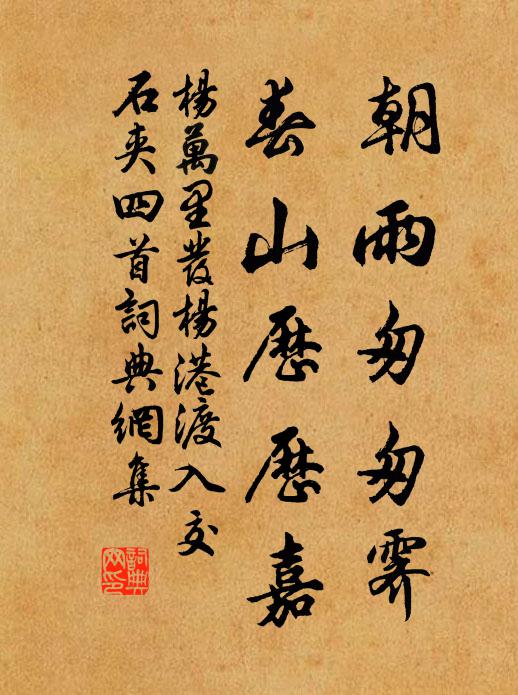 朝雨匆匆霽
春山歷歷嘉
楊萬里發楊港渡入交
石夾四首詞典網集
詞典
网印